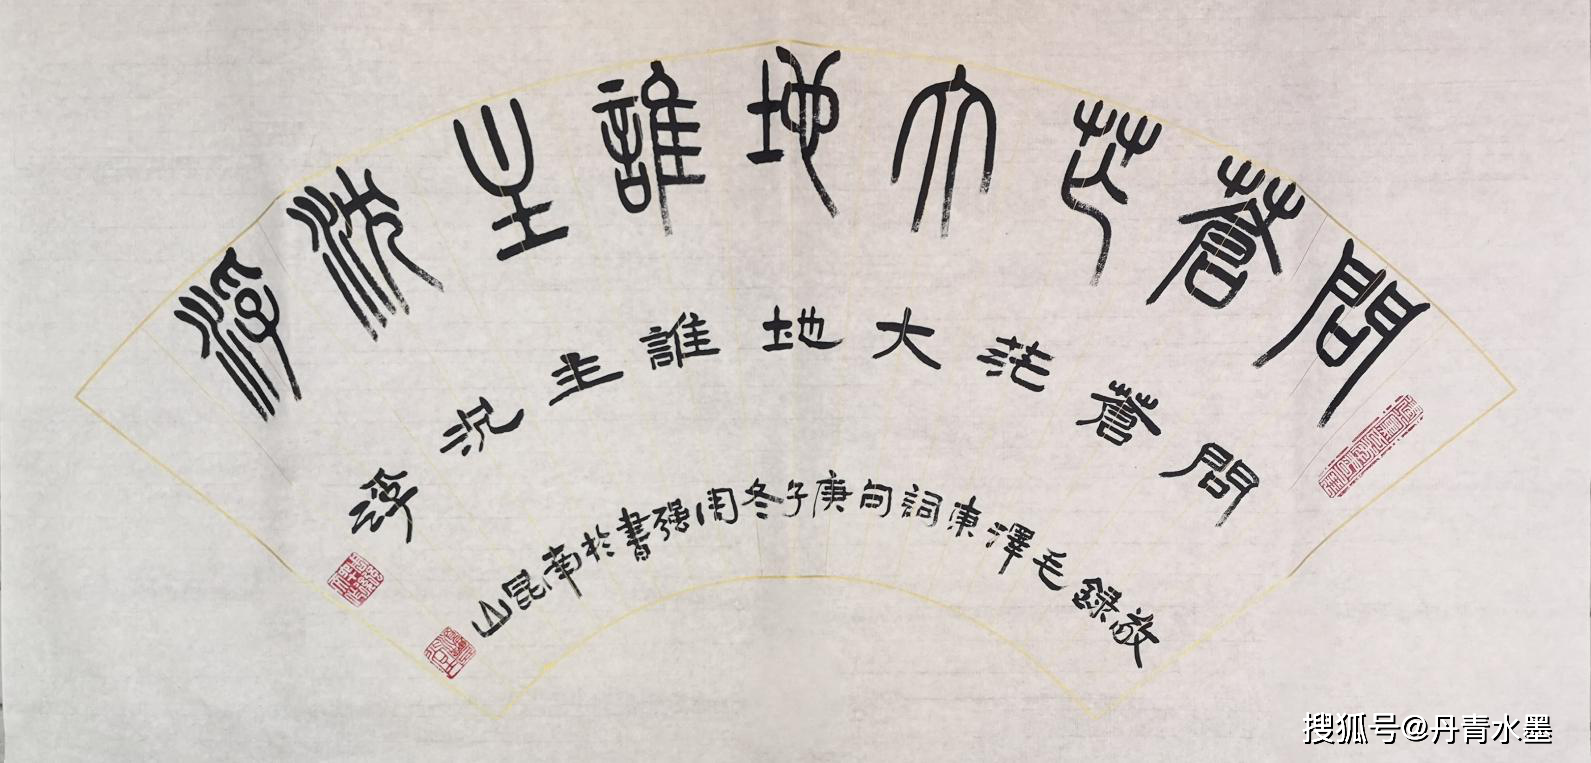 問蒼茫大地誰主沈浮
問蒼茫大地誰主沉浮
敬錄毛澤東詞句庚子冬周强書於南昆山
搜狐号@丹青水墨